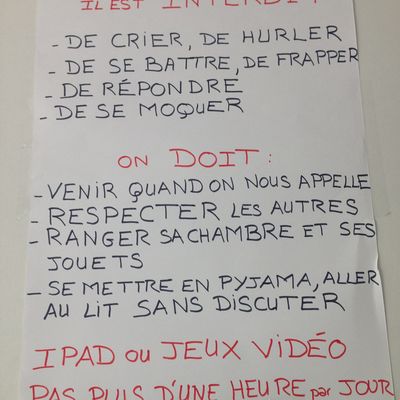 IL EST INTERDIT
- DE CRIER, DE HURLER
- DE SE BATTRE, DE FRAPPER
- DE RÉPONDRE
- DE SE MOQUER
ON DOIT :
- VENIR QUAND ON NOUS APPELLE
- RESPECTER LES AUTRES
- RANGER SA CHAMBRE ET SES
JOUETS
- SE METTRE EN PYJAMA, ALLER
AU LIT SANS DISCUTER
IPAD OU JEUX VIDÉO
PAS PLUS D'UNE HEURE par JOUR